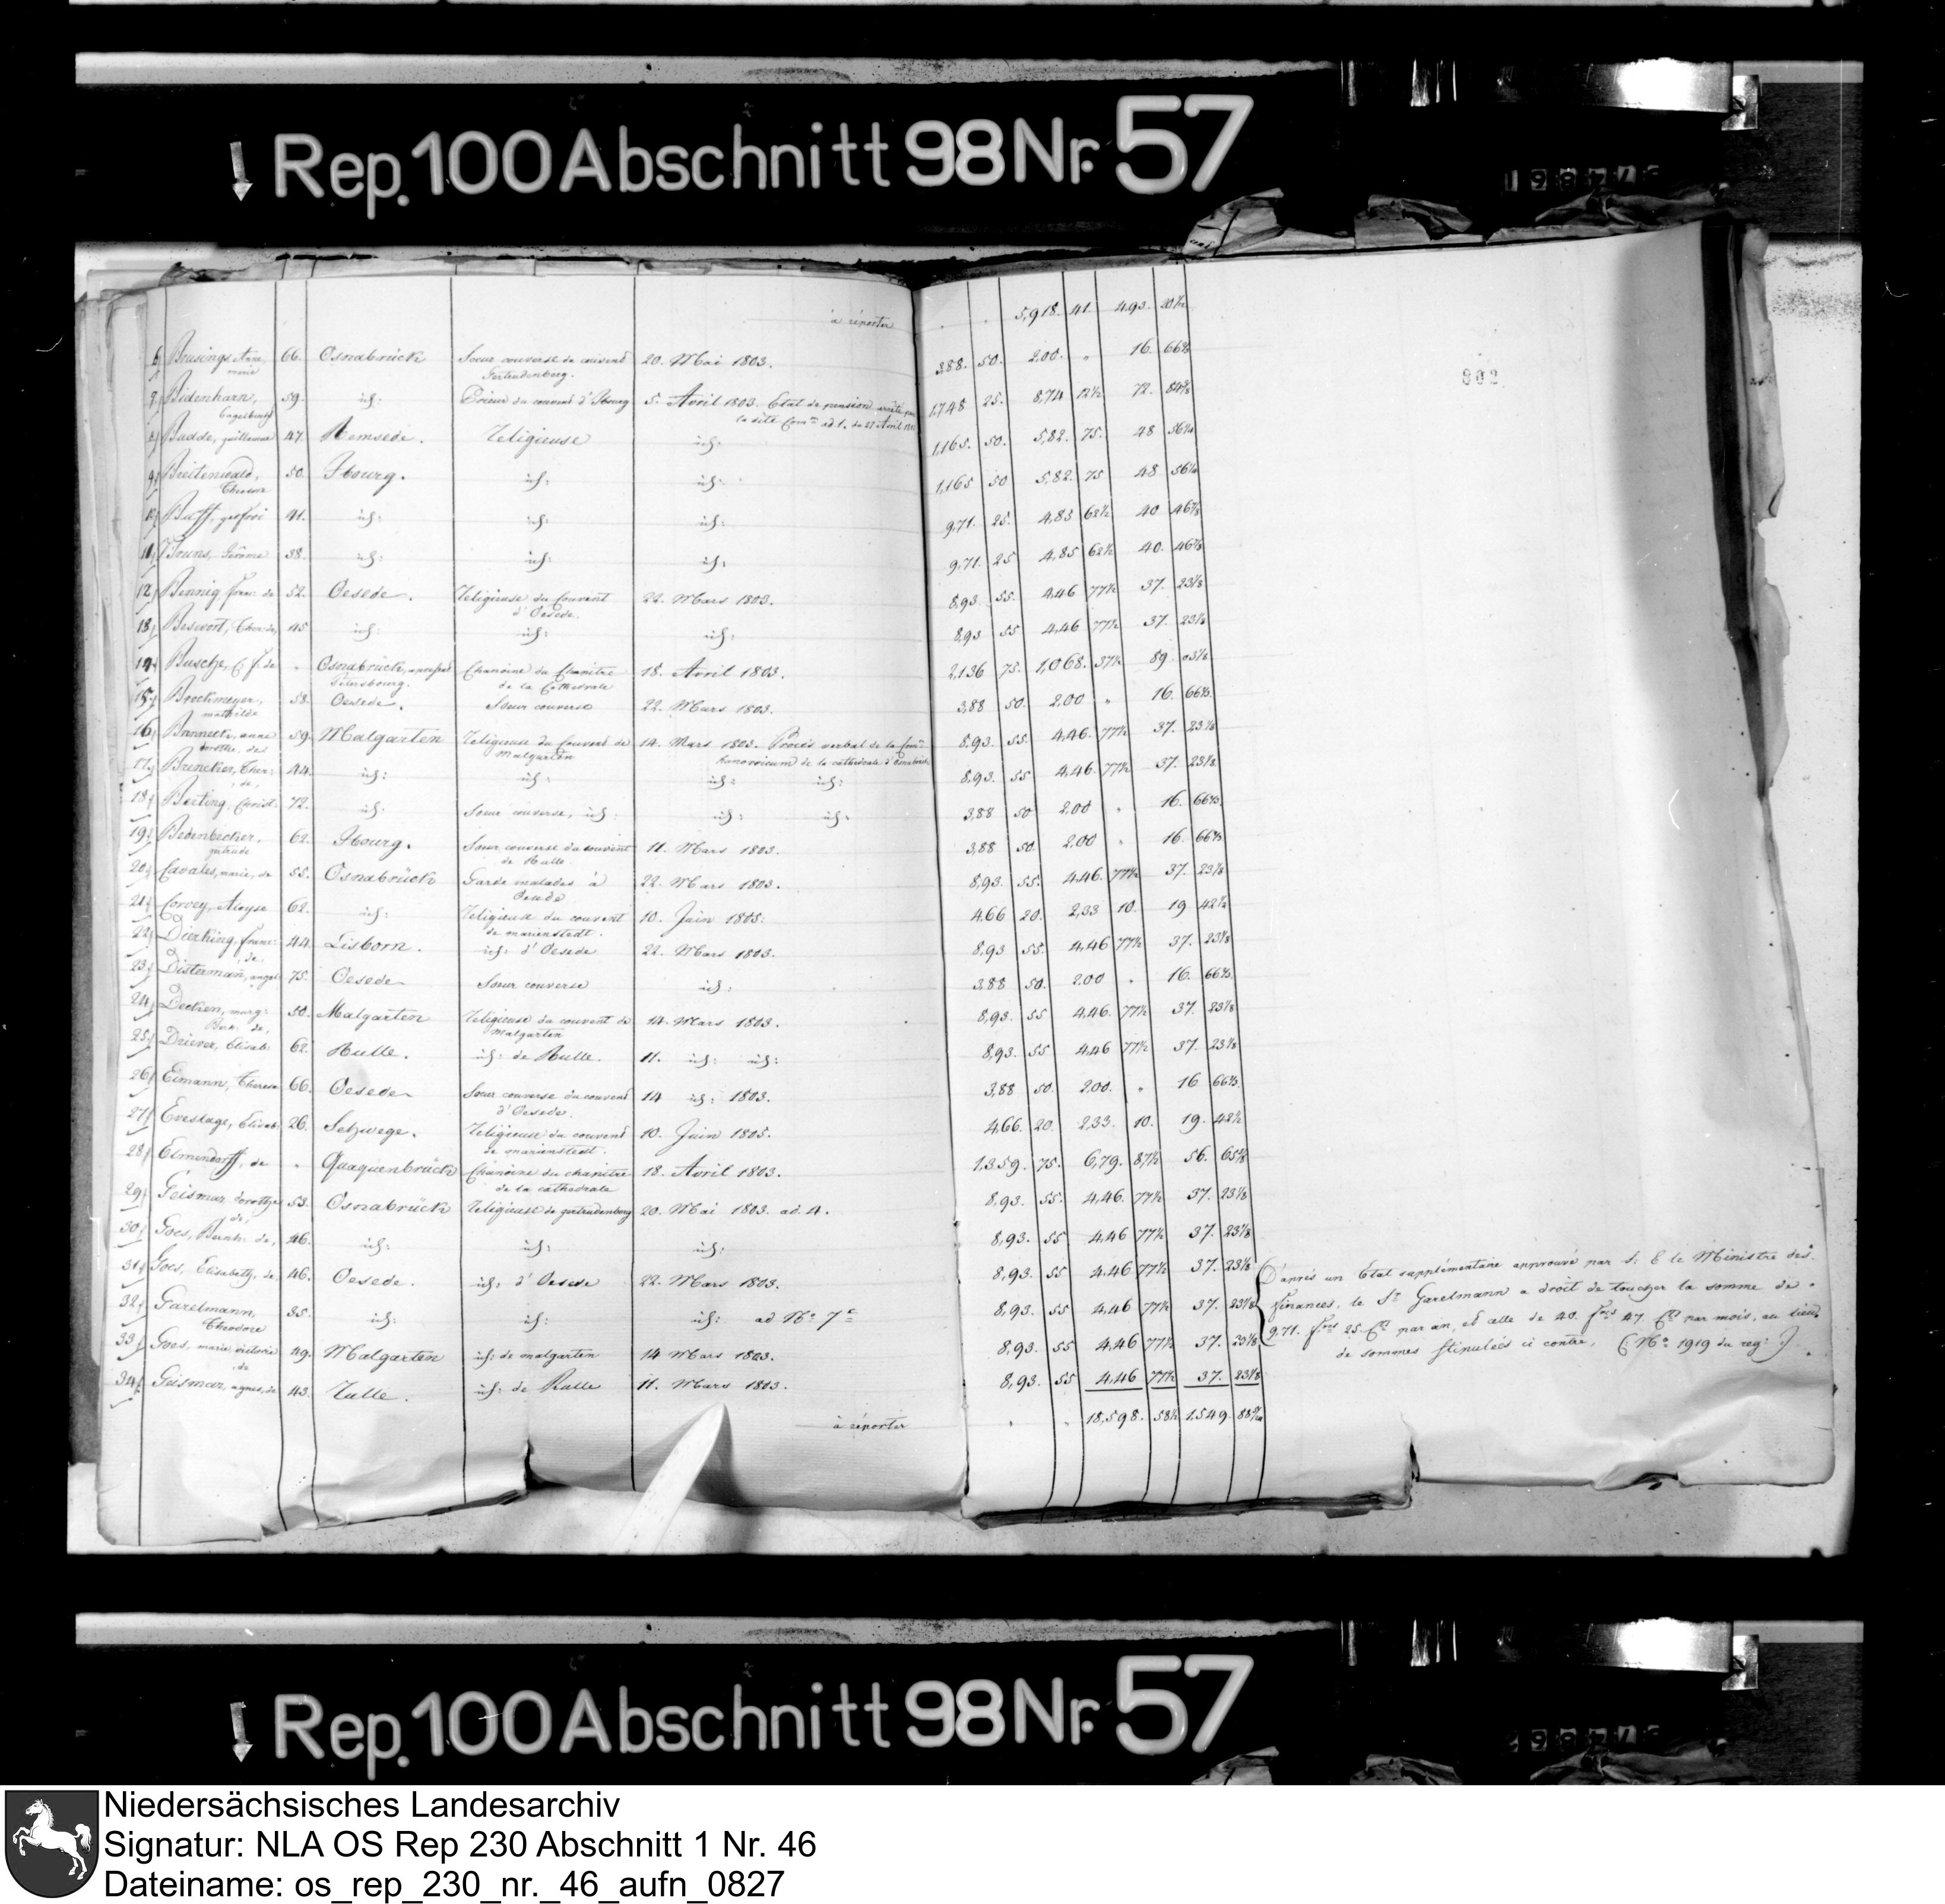 Rep. 100 Abschnitt 98 Nr. 57
à réporter 5,918. 41. 493. 20 1/2
802
6 Busing, Anne marie 66. Osnabrück Soeur converse du couvent Gertrudenberg. 20. Mai 1803. 388. 50. 200. " 16. 66 2/3
7 Bidenharn, Engelbert 59. id: Prieur du couvent d'Ibourg 5. Avril 1803. Etat de pension arrêté par la dite Com.on ad 1. du 27 Avril 1748 25. 874 12 1/2 72. 84 3/8
8 Budde, guillaume 47. Remsede. Religieuse id: 1,165. 50. 5,82. 75. 48 56 1/4
9 Breitenwald, 50. Ibourg. id: id: 1,165 50 5,82. 75 48 56 1/4
10 Buff, geofroi 41. id: id: id: 9,71. 25. 4,85 62 1/2 40 46 7/8
11 Bruns, Gérôme 38. id: id: id: 9,71. 25 4,85 62 1/2 40. 46 7/8
12 Bennig, Franc: de 52. Oesede. Religieuse du Couvent d'Oesede. 22. Mars 1803. 8,93. 55. 4,46 77 1/2 37. 23 1/8
13 Beswort, Ther: de, 45 id: id: id: 8,93 55 4,46 77 1/2 37. 23 1/8
14 Busche, C. f. de " Osnabrück, Pétersbourg. Chanoine du Chapitre de la Cathedrale 18. Avril 1803. 2,136 75. 1,068. 37 1/2 89. 03 1/8
15 Brockmeyer, mathilde 58. Oesede. Soeur converse 22. Mars 1803. 3,88 50. 2,00 " 16. 66 2/3
16 anne dorothe, de 59. Malgarten Religieuse du Couvent de Malgarten 14. Mars 1803. Procès verbal de la Com.on de la cathédrale d'Osnabrück 8,93. 55. 4,46. 77 1/2 37. 23 1/8
17 Brincker, Ther: de, 44. id: id: id: id: 8,93. 55 4,46. 77 1/2 37. 23 1/8
18 Berting, Christ: 72. id: Soeur converse, id: id: id: 3,88 50 2,00 " 16. 66 2/3
19 Bedenbecker, gertrude 62. Ibourg. Soeur converse du couvent de Rulle 11. Mars 1803. 3,88 50. 2,00 " 16. 66 2/3
20 Cavales, marie, de 55. Osnabrück Garde malades à Oesede 22. Mars 1803. 8,93. 55. 4,46. 77 1/2 37. 23 1/8
21 Corvey, Aloyse 62. id: Religieuse du couvent de marienstedt. 10. Juin 1805. 4,66 20. 2,33 10. 19 42 1/2
22 Dierking, franc: de 44. Lisborn. id: d'Oesede 22. Mars 1803. 8,93 55. 4,46 77 1/2 37. 23 1/8
23 Disterman, angel: 75. Oesede Soeur converse id: 3,88 50. 2,00 " 16. 66 2/3
24 Decken, marg: Bern: de, 50. Malgarten Religieuse du couvent de Malgarten 14. Mars 1803. 8,93. 55 4,46. 77 1/2 37. 23 1/8
25 Driever, Elisab: 62. Rulle. id: de Rulle. 11. id: id: 8,93. 55 4,46 77 1/2 37. 23 1/8
26 Eimann, Therese 66. Oesede Soeur converse du couvent d'Oesede. 14 id: 1803. 3,88 50. 2,00. " 16 66 2/3
27 Evestage, Elisab: 26. Selzwege. Religieuse du couvent de marienstedt. 10. Juin 1805. 4,66. 20. 2,33. 10. 19. 42 1/2
28 Elmendorff, de " Quaquenbrück Chanoine du chapitre de la cathédrale 18. Avril 1803. 1,359. 75. 6,79. 87 1/2 56. 65 5/8
29 Geismar dorothée de, 53. Osnabrück Religieuse de gertrudenberg 20. Mai 1803. ad. 4. 8,93. 55. 4,46. 77 1/2 37. 23 1/8
30 Goes, Bernh: de, 46. id: id: id: 8,93. 55 4,46 77 1/2 37. 23 1/8
31 Goes, Elisabeth, de 46. Oesede. id: d'Oesede 22. Mars 1803. 8,93 55 4,46 77 1/2 37. 23 1/8
32 Garelmann, Théodore 35. id: id: id: ad No. 7 8,93. 55 4,46 77 1/2 37. 23 1/8
33 Goes, marie victoria de 49. Malgarten id: de malgarten 14 Mars 1803. 8,93. 55 4,46 77 1/2 37. 23 1/8
34 Geismar, agnes, de 43. Rulle. id: de Rulle 11. Mars 1803. 8,93. 55 4,46 77 1/2 37. 23 1/8
à réporter 18,598. 58 1/2 1,549. 88
D'aprés un Etat supplémentaire approuvé par S: E le Ministre des
finances, le Sr Garelmann a droit de toucher la somme de
9,71. frcs 25. Cs par an, et celle de 40. frcs 47. Cs par mois, au lieu
de sommes stipulées ci contre, (No. 1919 du reg:)
Rep. 100 Abschnitt 98 Nr. 57
Niedersächsisches Landesarchiv
Signatur: NLA OS Rep 230 Abschnitt 1 Nr. 46
Dateiname: os_rep_230_nr._46_aufn_0827